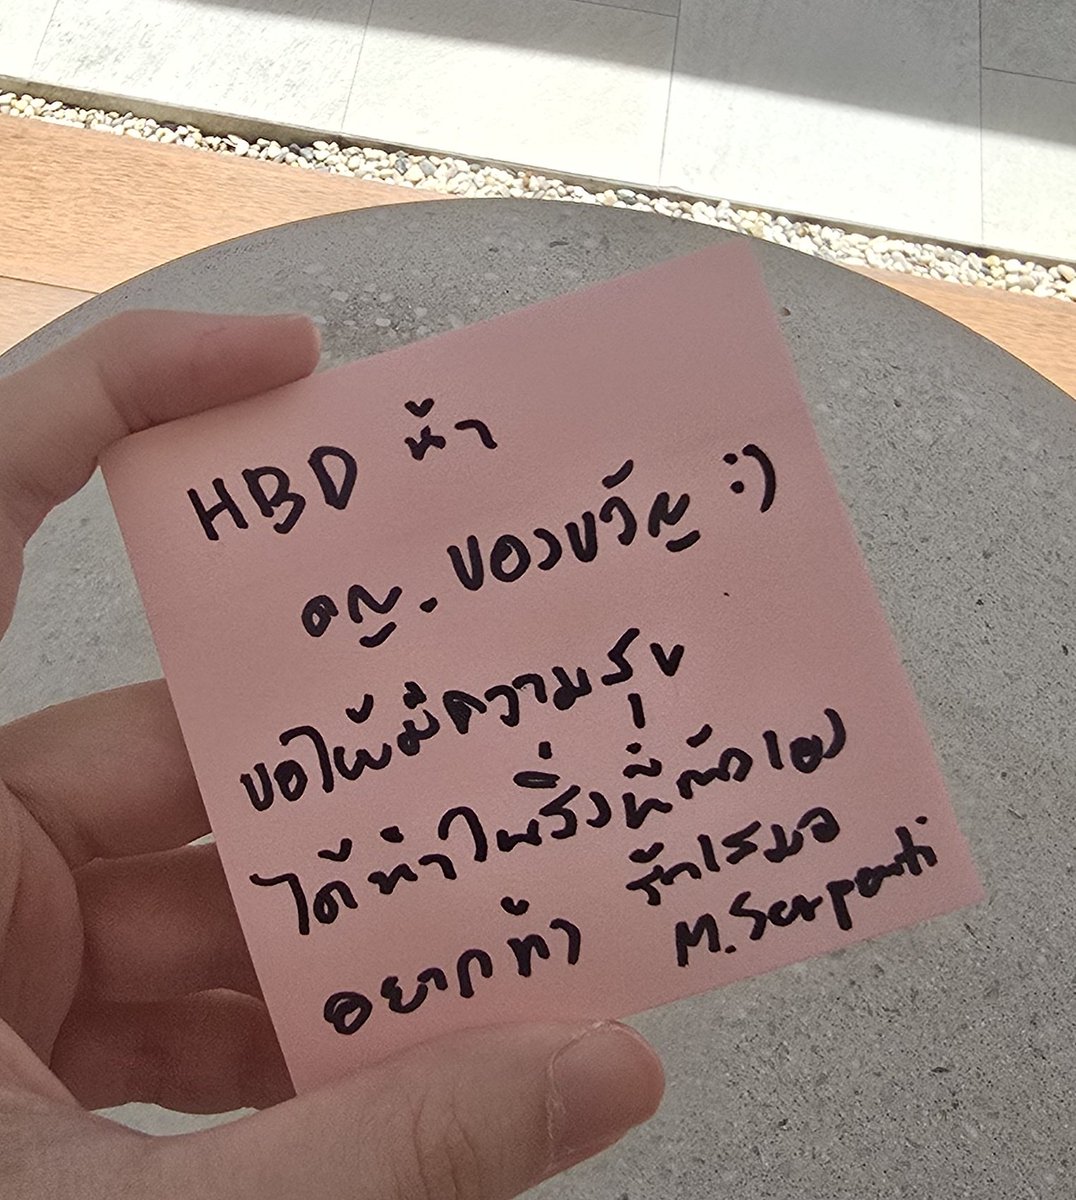 HBD น้า
ดญ. ของขวัญ :)
ขอให้มีความสุข
ได้ทำในสิ่งที่ตัวเอง
อยากทำ รักเสมอ
M. Serpenti